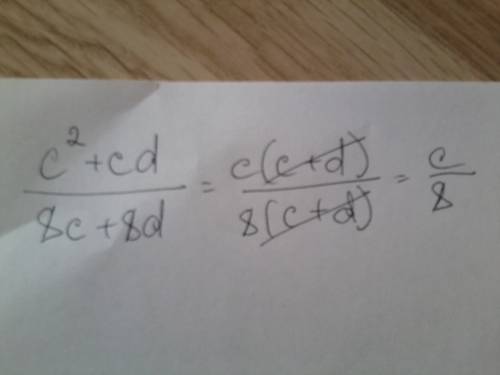 c² + cd / 8c + 8d = c(c+d) / 8(c+d) = c / 8